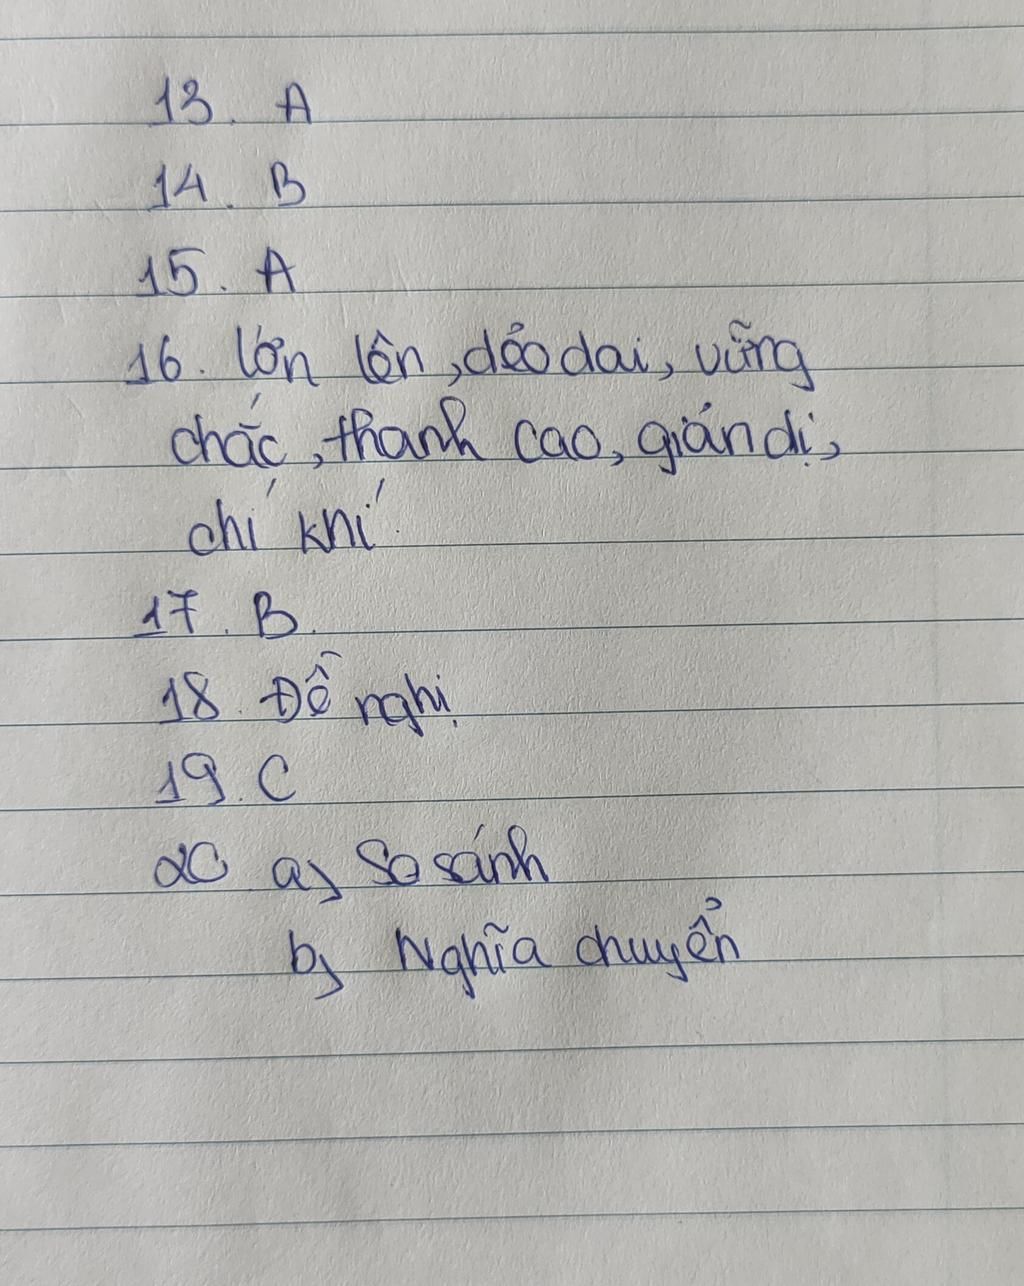 13. A
14. B
15. A
16. lớn lên, dẻo dai, vững
chắc, thanh cao, giản dị,
chí khí.
17. B.
18. Đề nghị
19. C
20 a) So sánh
b) Nghĩa chuyển